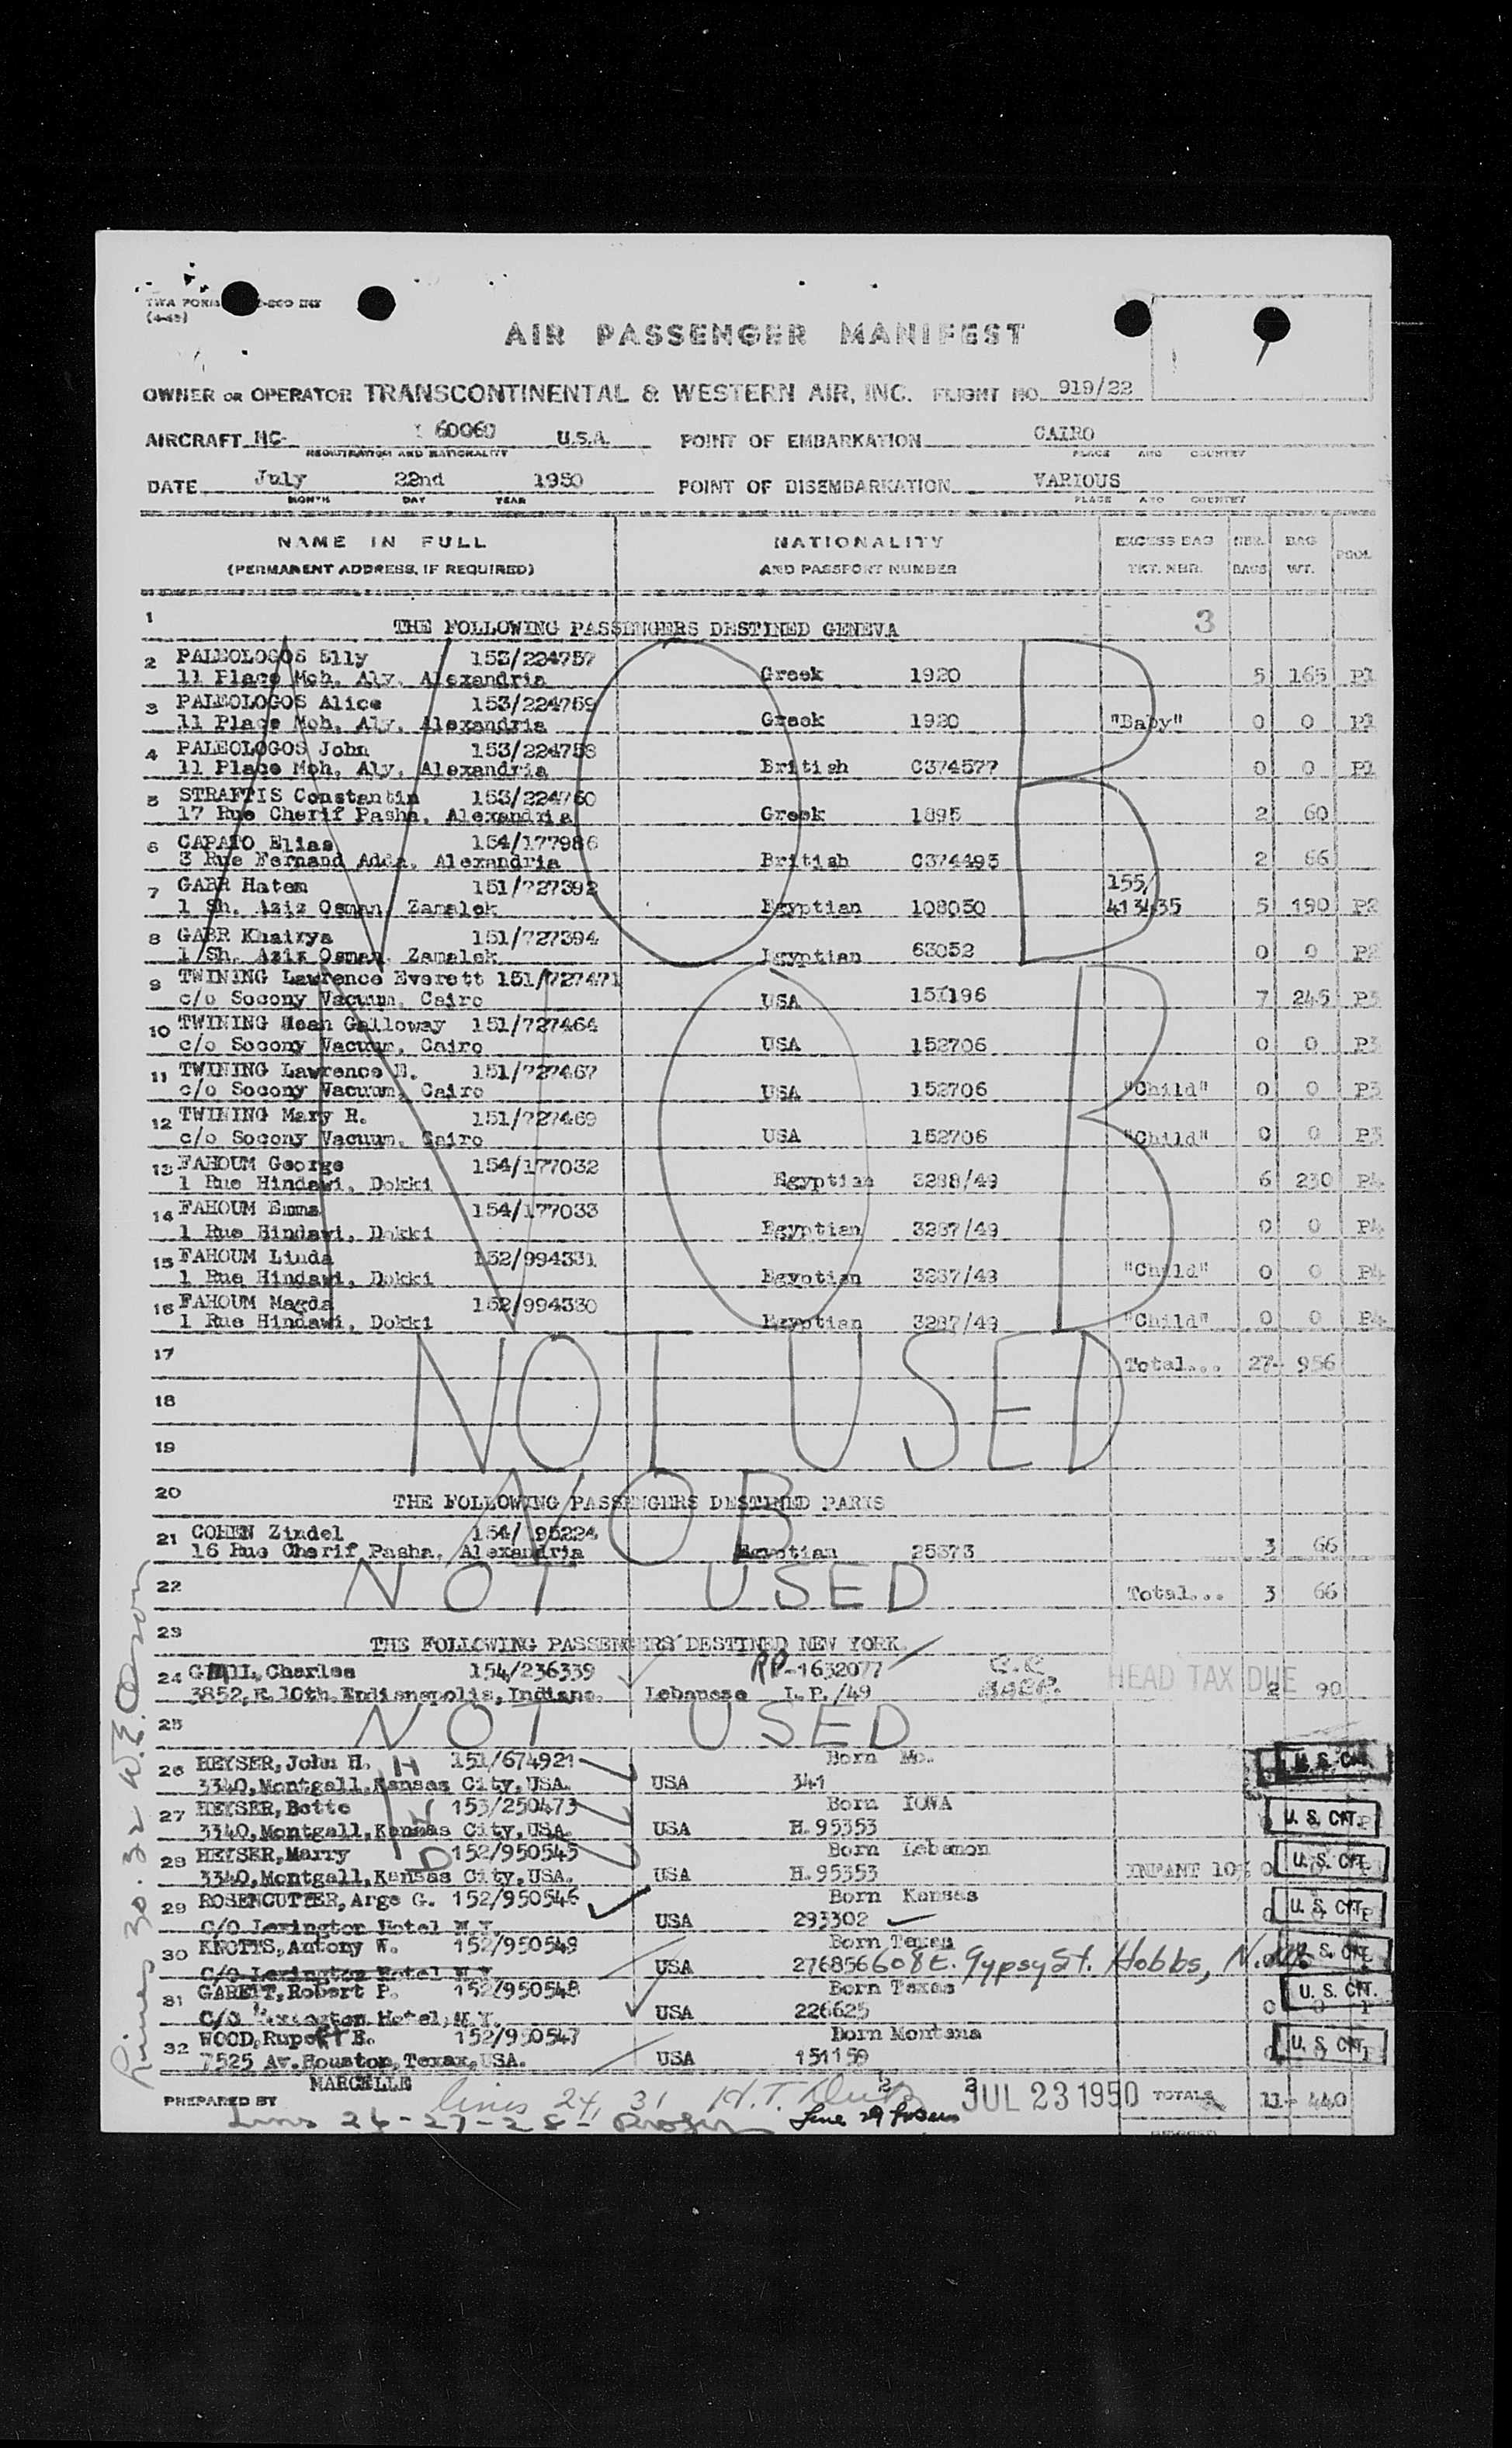 TWA FORM
(4-49)
AIR PASSENGER MANIFEST
OWNER OR OPERATOR TRANSCONTINENTAL & WESTERN AIR, INC. FLIGHT NO. 919/22
AIRCRAFT NC- 60060 U.S.A. POINT OF EMBARKATION CAIRO
REGISTRATION AND NATIONALITY PLACE AND COUNTRY
DATE July 22nd 1950 POINT OF DISEMBARKATION VARIOUS
MONTH DAY YEAR PLACE AND COUNTRY
NAME IN FULL NATIONALITY EXCESS BAG NBR. BAG POOL
(PERMANENT ADDRESS, IF REQUIRED) AND PASSPORT NUMBER TKT. NBR. BAGS WT.
1 THE FOLLOWING PASSENGERS DESTINED GENEVA 3
2 PALEOLOGOS Elly 153/224757
11 Place Moh. Aly. Alexandria Greek 1920 5 165 P1
3 PALEOLOGOS Alice 153/224759
11 Place Moh. Aly. Alexandria Greek 1920 "Baby" 0 0 P1
4 PALEOLOGOS John 153/224758
11 Place Moh. Aly. Alexandria British C374577 0 0 P1
5 STRAFTIS Constantin 153/224760
17 Rue Cherif Pasha, Alexandria Greek 1895 2 60
6 CAPATO Elias 154/177986
3 Rue Fernand Adda, Alexandria British C374495 2 66
7 GABR Hatem 151/727392 155/
1 Sh. Aziz Osman, Zamalek Egyptian 108050 413435 5 190 P2
8 GABR Khairya 151/727394
1 Sh. Aziz Osman, Zamalek Egyptian 63052 0 0 P2
9 TWINING Lawrence Everett 151/727471
c/o Socony Vacuum, Cairo USA 151196 7 245 P3
10 TWINING Galloway 151/727464
c/o Socony Vacuum, Cairo USA 152706 0 0 P3
11 TWINING Lawrence E. 151/727467
c/o Socony Vacuum, Cairo USA 152706 "Child" 0 0 P3
12 TWINING Mary R. 151/727469
c/o Socony Vacuum, Cairo USA 152706 "Child" 0 0 P3
13 FAHOUM George 154/177032
1 Rue Hindawi, Dokki Egyptian 3288/49 6 230 P4
14 FAHOUM Emma 154/177033
1 Rue Hindawi, Dokki Egyptian 3287/49 0 0 P4
15 FAHOUM Linda 152/994331
1 Rue Hindawi, Dokki Egyptian 3287/49 "Child" 0 0 P4
16 FAHOUM Magda 152/994330
1 Rue Hindawi, Dokki Egyptian 3287/49 "Child" 0 0 P4
NOB
NOB
17 Total... 27- 956
18 NOT USED
19
20 THE FOLLOWING PASSENGERS DESTINED PARIS
21 COHEN Zindel 154/ 95224
16 Rue Cherif Pasha, Alexandria Egyptian 25373 3 66
NOB
22 NOT USED Total... 3 66
23 THE FOLLOWING PASSENGERS DESTINED NEW YORK
24 Charles 154/236339 RP-1632077
3852, E. 10th. Indianapolis, Indiana. Lebanese L.P./49 HEAD TAX DUE 2 90
25 NOT USED
26 HEYSER, John H. H 151/674921 Born Mo.
3340, Montgall, Kansas City, USA. USA 341 U. S. CIT.
27 HEYSER, Bette W 153/250473 Born IOWA
3340, Montgall, Kansas City, USA. USA H.95353 U. S. CIT.
28 HEYSER, Marry D 152/950545 Born Lebanon
3340, Montgall, Kansas City, USA. USA H.95353 INFANT 10% 0 U. S. CIT.
29 ROSENCUTTER, Arge G. 152/950546 Born Kansas
C/O Lexington Hotel N.Y. USA 293302 0 U. S. CIT.
30 KNOTTS, Antony W. 152/950549 Born Texas
C/O Lexington Hotel N.Y. USA 276856 608 E. Gypsy St. Hobbs, N.M. U. S. CIT.
31 GARETT, Robert P. 152/950548 Born Texas
C/O Lexington Hotel, N.Y. USA 226625 0 U. S. CIT.
32 WOOD, Rupert E. 152/950547 Born Montana
7525 Av. Houston, Texax, USA. USA 151159 U. S. CIT.
MARCELLE
PREPARED BY Lines 24, 31 H.T. JUL 23 1950 TOTALS 11- 440
Lines 26-27-28- Line 29
Lines 30-32 W.E.